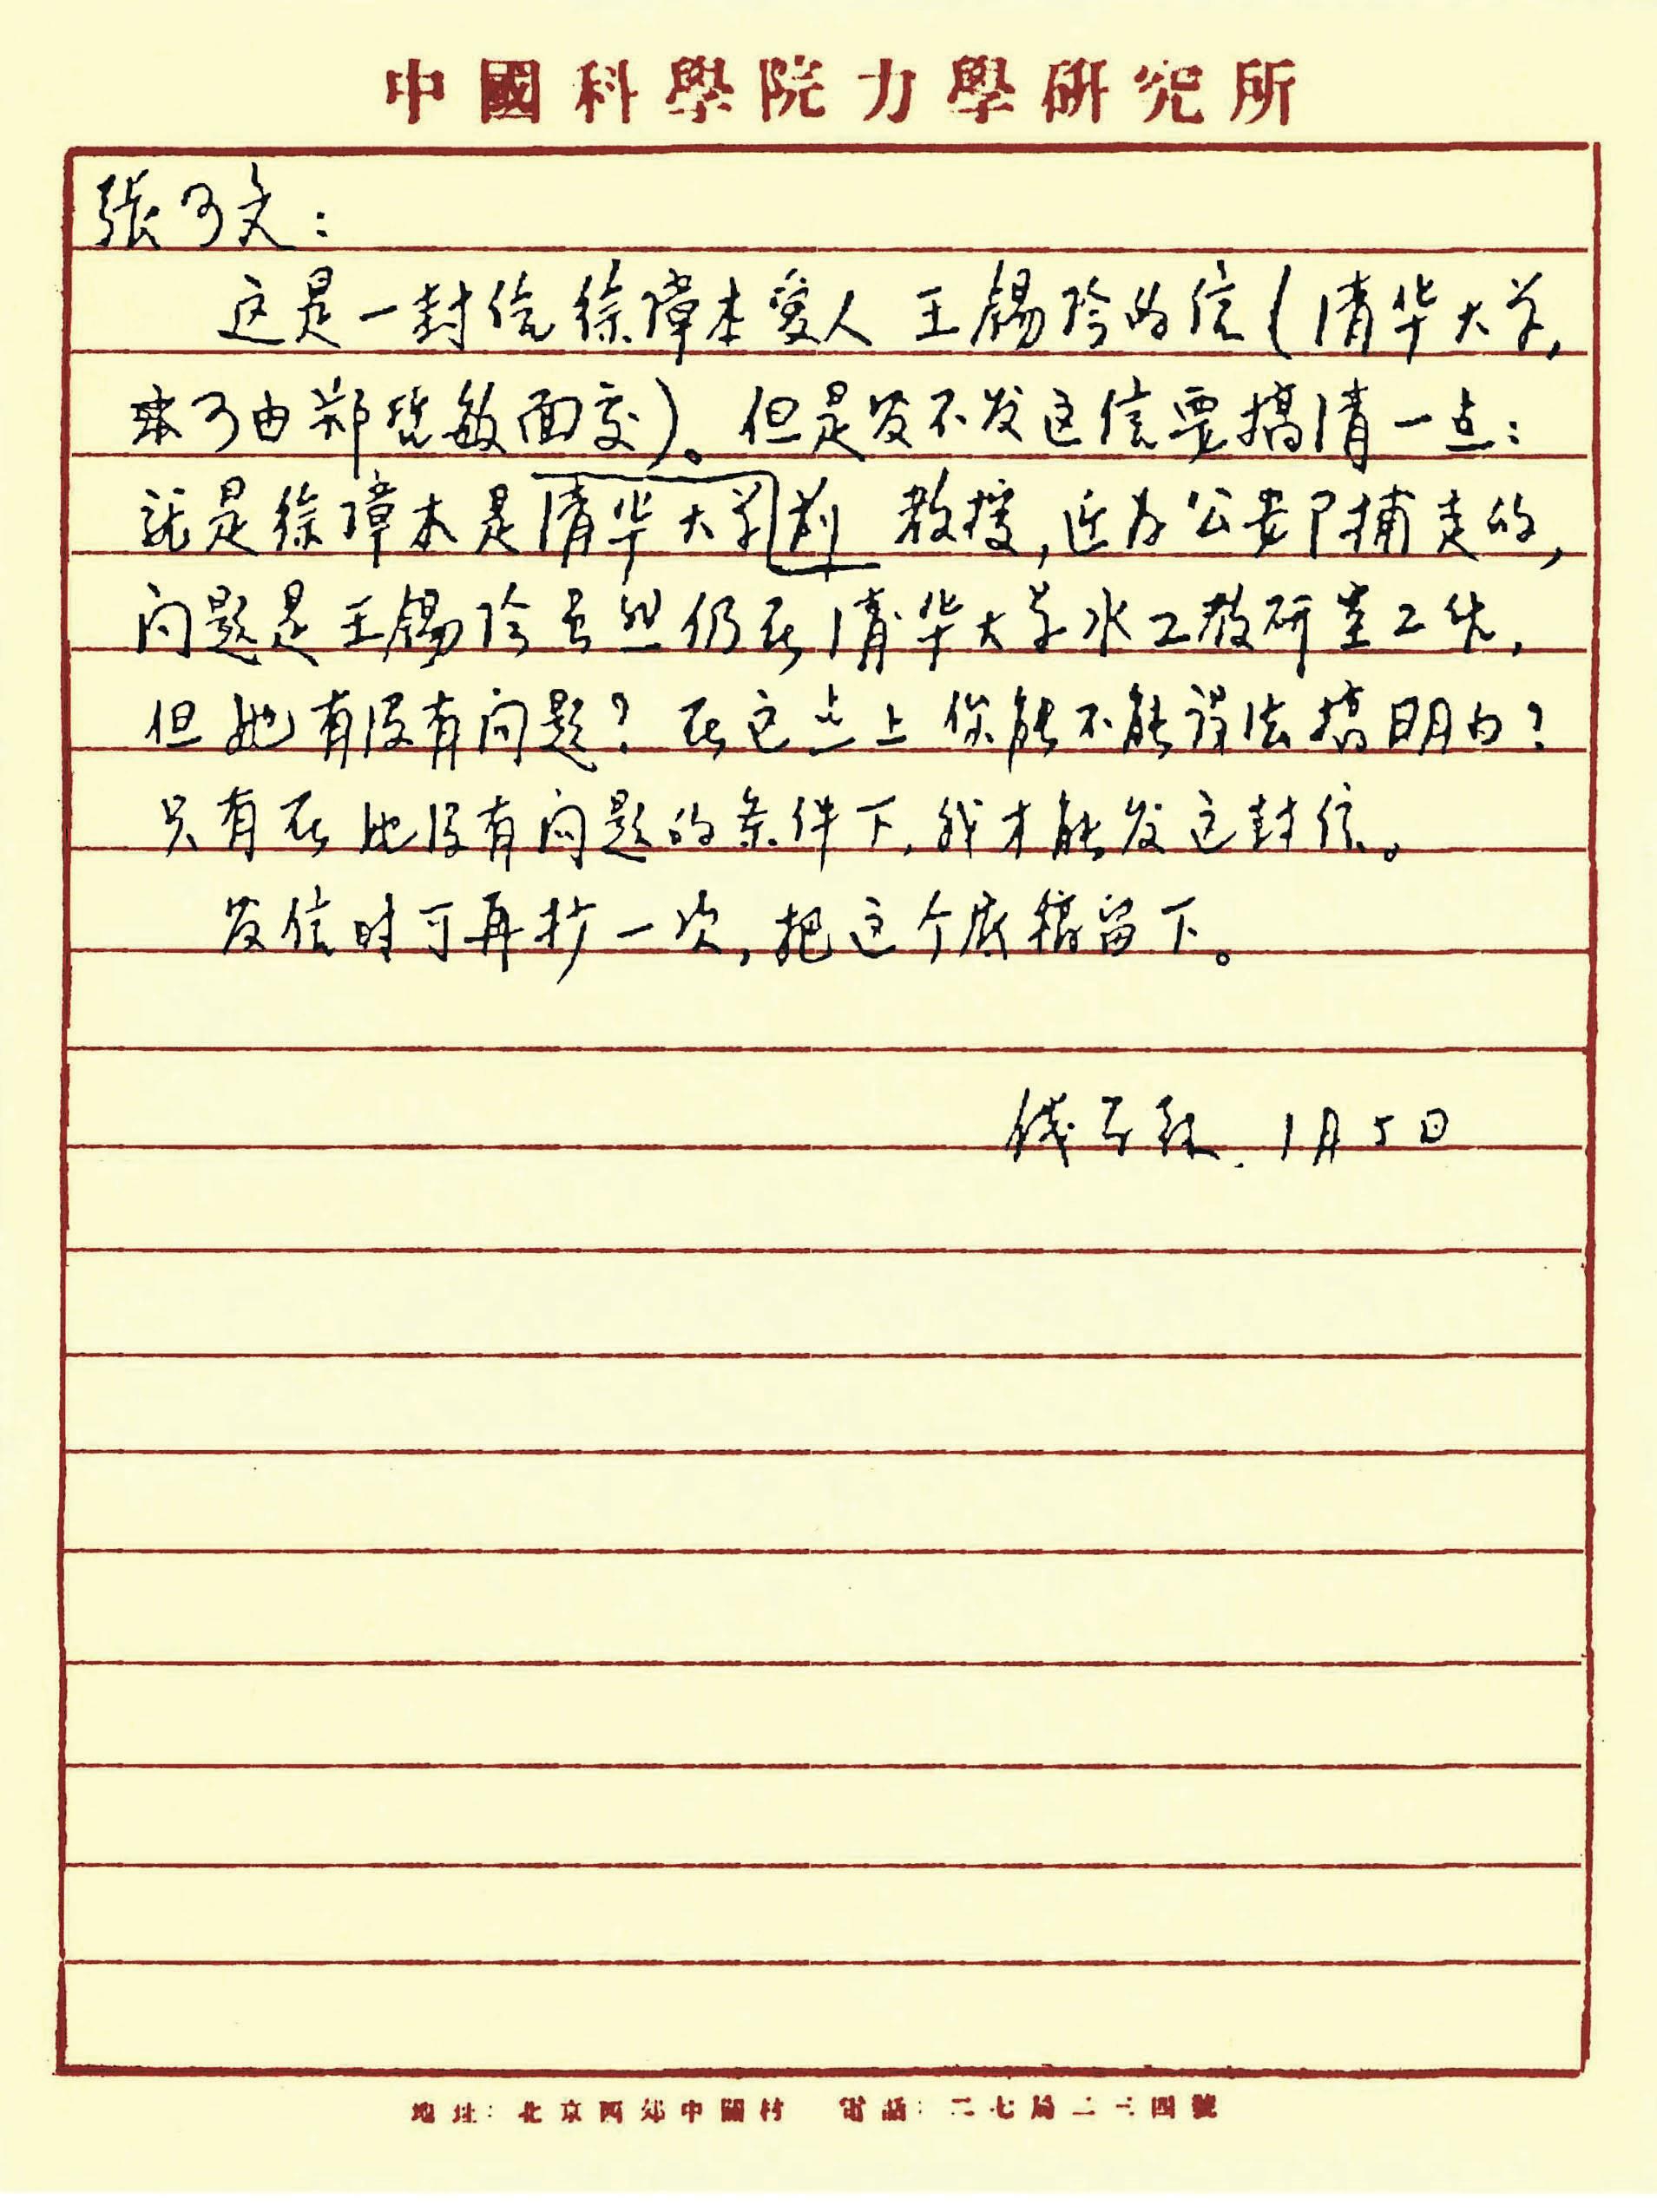 中國科學院力學研究所
張可文：
这是一封给徐璋本爱人王锡玲的信（清华大学，
来可由郑哲敏面交）。但是发不发这信要搞清一点：
就是徐璋本是前清华大学教授，近为公安部捕走的，
问题是王锡玲虽然仍在清华大学水工教研室工作，
但她有没有问题？在这点上你能不能设法搞明白？
只有在她没有问题的条件下，我才能发这封信。
发信时可再抄一次，把这个底稿留下。
钱学森．1月5日
地址：北京西郊中關村 電話：二七局二三四號